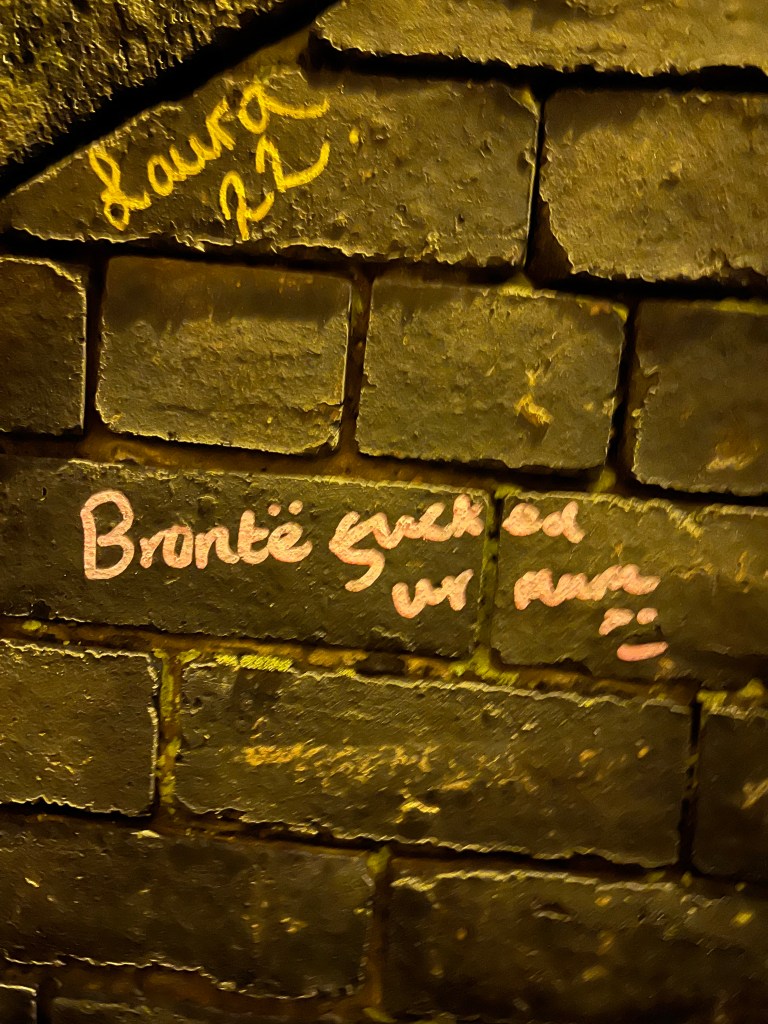 Laura
22.
Brontë sucked
ur mum